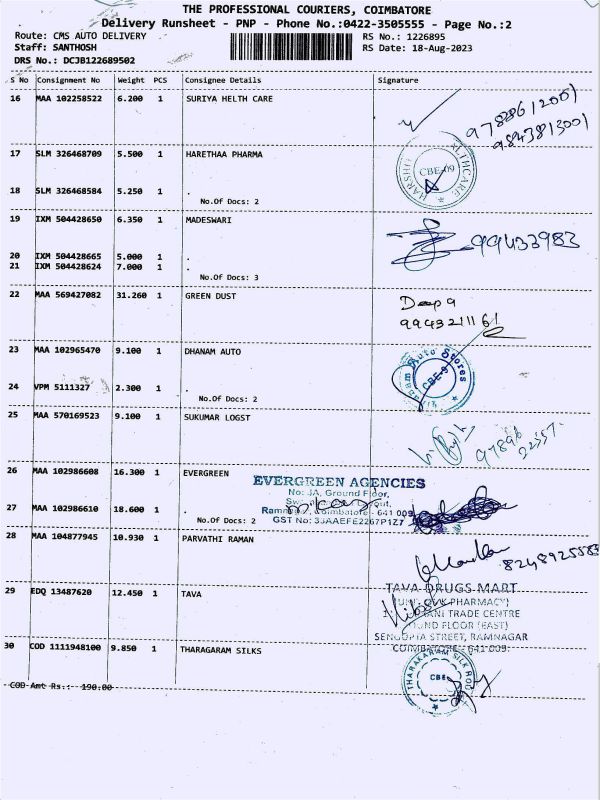 THE PROFESSIONAL COURIERS, COIMBATORE
Delivery Runsheet - PNP - Phone No.:0422-3505555 - Page No.:2
Route: CMS AUTO DELIVERY RS No.: 1226895
Staff: SANTHOSH RS Date: 18-Aug-2023
DRS No.: DCJB122689502
S No Consignment No Weight PCS Consignee Details Signature
16 MAA 102258522 6.200 1 SURIYA HELTH CARE
9843813001
17 SLM 326468709 5.500 1 HARETHAA PHARMA
CBE-09
18 SLM 326468584 5.250 1 .
No.Of Docs: 2
19 IXM 504428650 6.350 1 MADESWARI
99433983
20 IXM 504428665 5.000 1 .
21 IXM 504428624 7.000 1 .
No.Of Docs: 3
22 MAA 569427082 31.260 1 GREEN DUST
Deepa
9943211161
23 MAA 102965470 9.100 1 DHANAM AUTO
Auto Stores
CBE-9
24 VPM 5111327 2.300 1 .
No.Of Docs: 2
25 MAA 570169523 9.100 1 SUKUMAR LOGST
26 MAA 102986608 16.300 1 EVERGREEN
EVERGREEN AGENCIES
No: 3A, Ground Floor,
27 MAA 102986610 18.600 1 .
Coimbatore - 641 009
No.Of Docs: 2 GST No: 33AAEFE2267P1Z7
28 MAA 104877945 10.930 1 PARVATHI RAMAN
29 EDQ 13487620 12.450 1 TAVA
TAVA DRUGS MART
PHARMACY)
TRADE CENTRE
FLOOR (EAST)
SENGUPTA STREET, RAMNAGAR
COIMBATORE - 641 009.
30 COD 1111948100 9.850 1 THARAGARAM SILKS
THARAKARAM SILK
CBE
COD Amt Rs.: 190.00